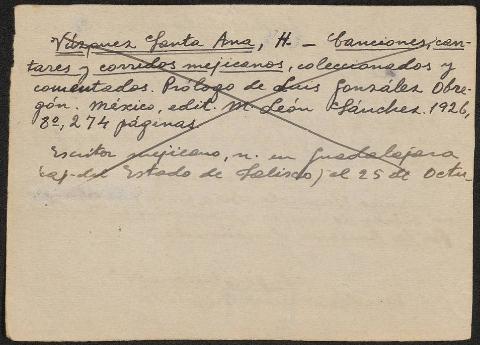 Vázquez Santa Ana, H. - Canciones, can-
tares y corridos mejicanos, coleccionados y
comentados. Prólogo de Luis González Obre-
gón. México, edit. M. León Sánchez. 1926,
8º, 274 páginas.
Escritor mejicano, n. en Guadalajara
cap. del Estado de Jalisco) el 25 de Octu-